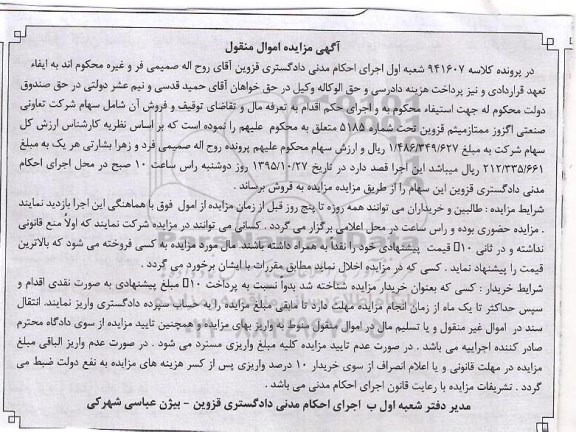 آگهی مزایده اموال منقول
در پرونده کلاسه ۹۴۱۶۰۷ شعبه اول اجرای احکام مدنی دادگستری قزوین آقای روح اله صمیمی فر و غیره محکوم اند به ایفاء
تعهد قراردادی و نیز پرداخت هزینه دادرسی و حق الوکاله وکیل در حق خواهان آقای حمید قدسی و نیم عشر دولتی در حق صندوق
دولت محکوم له جهت استیفاء محکوم به و اجرای حکم اقدام به تعرفه مال و تقاضای توقیف و فروش آن شامل سهام شرکت تعاونی
صنعتی اگزوز ممتازمیثم قزوین تحت شماره ۵۱۸۵ متعلق به محکوم علیهم را نموده است که بر اساس نظریه کارشناس ارزش کل
سهام شرکت به مبلغ ۱/۴۸۶/۳۴۹/۶۲۷ ریال و ارزش سهام محکوم علیهم پرونده روح اله صمیمی فرد و زهرا بشارتی هر یک به مبلغ
۲۱۲/۳۳۵/۶۶۱ ریال میباشد این اجرا قصد دارد در تاریخ ۱۳۹۵/۱۰/۲۷ روز دوشنبه راس ساعت ۱۰ صبح در محل اجرای احکام
مدنی دادگستری قزوین این سهام را از طریق مزایده مزایده به فروش برساند .
شرایط مزایده : طالبین و خریداران می توانند همه روزه تا پنج روز قبل از زمان مزایده از اموال فوق با هماهنگی این اجرا بازدید نمایند
. مزایده حضوری بوده و راس ساعت در محل اعلامی برگزار می گردد . کسانی می توانند در مزایده شرکت نمایند که اولاً منع قانونی
نداشته و در ثانی ۱۰□ قیمت پیشنهادی خود را نقداً به همراه داشته باشند. مال مورد مزایده به کسی فروخته می شود که بالاترین
قیمت را پیشنهاد نماید . کسی که در مزایده اخلال نماید مطابق مقررات با ایشان برخورد می گردد .
شرایط خریدار : کسی که بعنوان خریدار مزایده شناخته شد بدوا نسبت به پرداخت ۱۰□ مبلغ پیشنهادی به صورت نقدی اقدام و
سپس حداکثر تا یک ماه از زمان انجام مزایده مهلت دارد تا مابقی مبلغ مزایده را به حساب سپرده دادگستری واریز نمایند. انتقال
سند در اموال غیر منقول و یا تسلیم مال در اموال منقول منوط به واریز بهای مزایده و همچنین تایید مزایده از سوی دادگاه محترم
صادر کننده اجراییه می باشد . در صورت عدم تایید مزایده کلیه مبلغ واریزی مسترد می شود . در صورت عدم واریز الباقی مبلغ
مزایده در مهلت قانونی و یا اعلام انصراف از سوی خریدار ۱۰ درصد واریزی پس از کسر هزینه های مزایده به نفع دولت ضبط می
گردد . تشریفات مزایده با رعایت قانون اجرای احکام مدنی می باشد .
مدیر دفتر شعبه اول ب اجرای احکام مدنی دادگستری قزوین - بیژن عباسی شهرکی